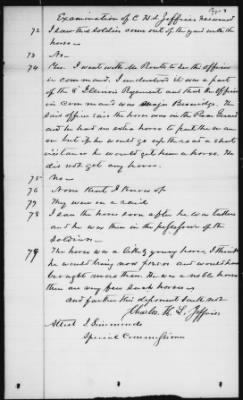 Page 8
Examination of C H L Jeffries Resumed
72 I saw the soldier come out of the yard with the
horse—
73 No—
74 Yes. I went with Mr to see the officer
in command. I understood it was a part
of the 8 Illinois Regiment and that the officer
in command was Major Beveridge. The
said officer said the horse was in the Rear Guard
and he had no extra horse to put the man
on but if he would go up the road a short
distance he would get him a horse. He
did not get any horse.
75 No—
76 None that I know of
77 They were on a raid
78 I saw the horse soon after he was taken
and he was then in the possession of the
soldiers—
79 The horse was a likely young horse, I think
he would bring now $ or and would have
brought more then. He was a noble horse
there are very few such horses
and further this deponent saith not
Charles H. L. Jeffries
Special Commissioner